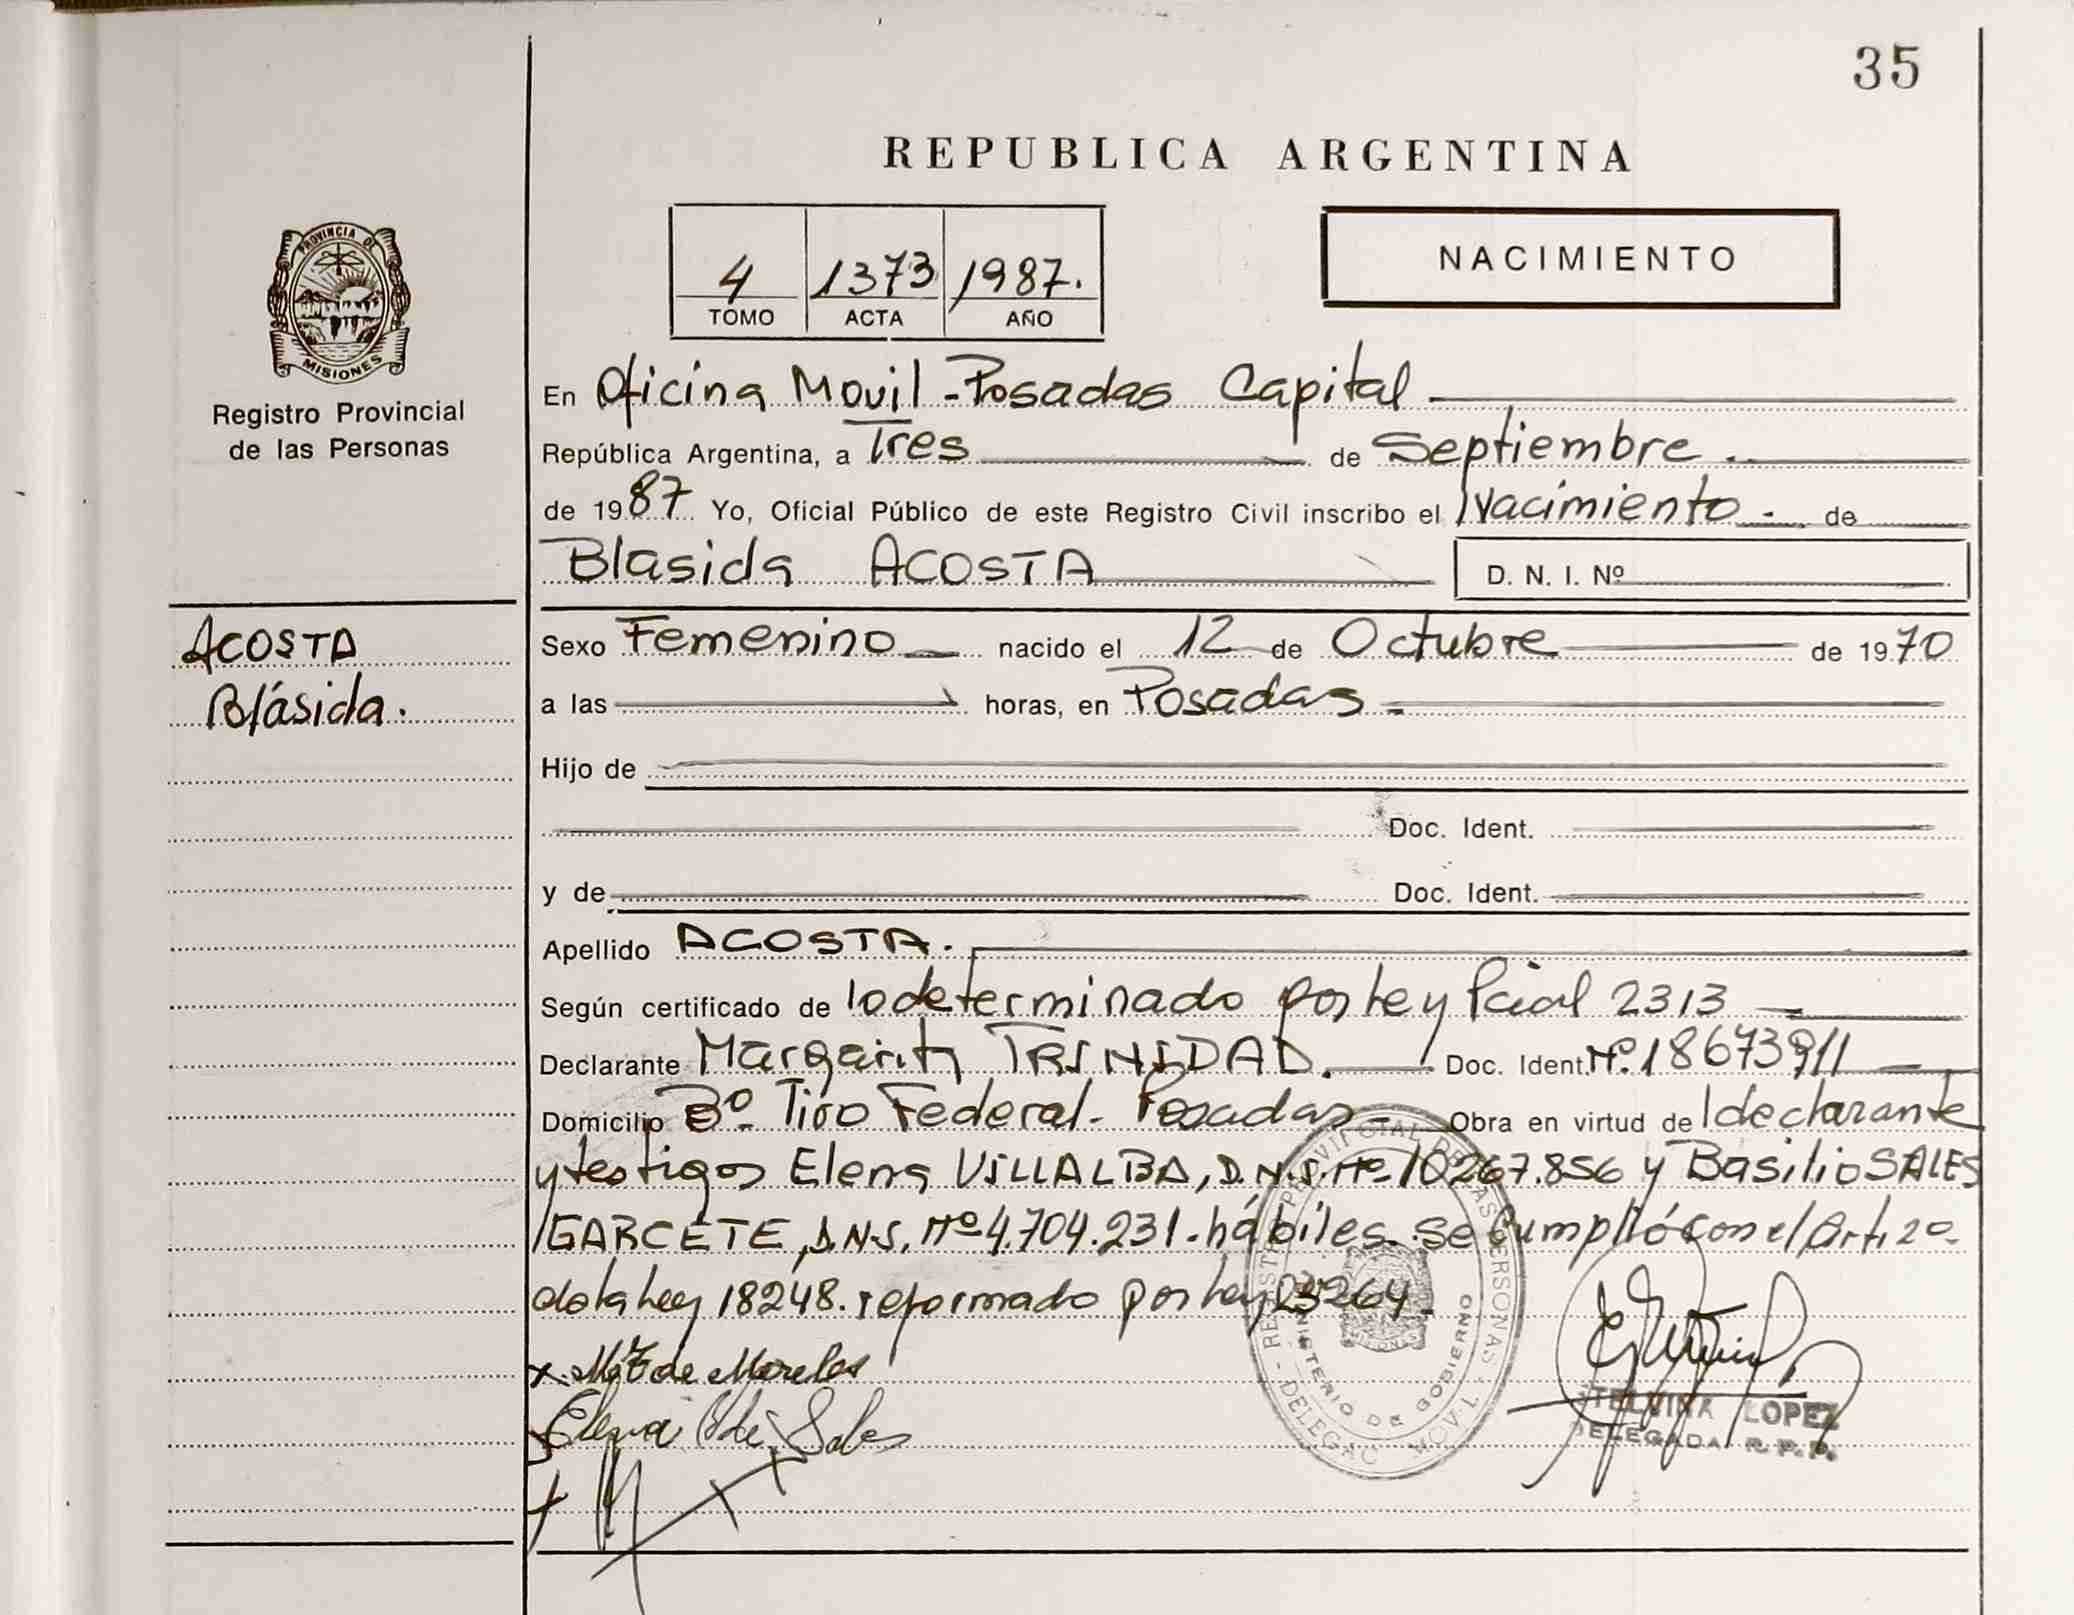 35
REPUBLICA ARGENTINA
4 1373 1987.
TOMO ACTA AÑO
NACIMIENTO
PROVINCIA DE
MISIONES
Registro Provincial
de las Personas
En Oficina Movil - Posadas Capital
República Argentina, a Tres de Septiembre.
de 1987 Yo, Oficial Público de este Registro Civil inscribo el Nacimiento - de
Blasida ACOSTA D. N. I. Nº
ACOSTA
Blásida.
Sexo Femenino nacido el 12 de Octubre de 1970
a las horas, en Posadas -
Hijo de
Doc. Ident.
y de Doc. Ident.
Apellido ACOSTA.
Según certificado de lo determinado por Ley Pcial 2313
Declarante Margarita TRINIDAD. Doc. Ident. Nº. 18673911
Domicilio Bº Tiro Federal - Posadas - Obra en virtud de declarante
y testigos Elena VILLALBA, D.N.I. Nº 10267.856 y Basilio SALES
GARCETE, D.N.I. Nº 4.704.231 - hábiles. Se cumplió con el Art. 20
de la Ley 18248. reformado por Ley 23264.
x de Morales
Elena de Sales
REGISTRO PROVINCIAL DE LAS PERSONAS
MINISTERIO DE GOBIERNO
DELEGAC. MOVIL
ETELVINA LOPEZ
DELEGADA R. P. P.